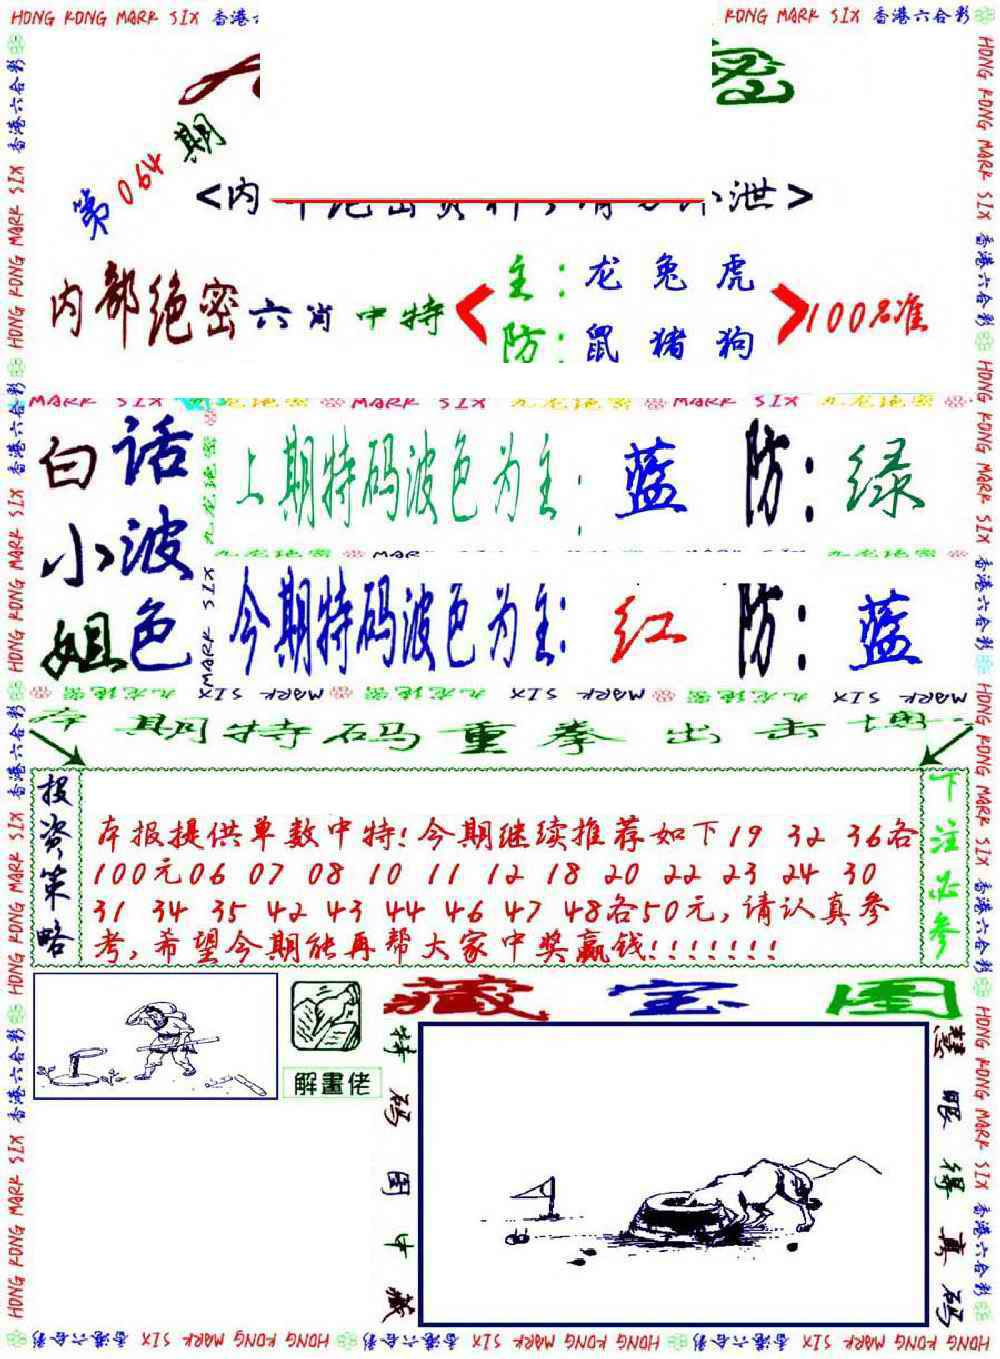 HONG KONG MARK SIX 香港
KONG MARK SIX 香港六合彩
密
第064期
<内
泄>
内部绝密六肖中特
主:龙 兔 虎
防:鼠 猪 狗
100%准
MARK SIX 九龙绝密 MARK SIX 九龙绝密 MARK SIX 九龙绝密
白小姐
话波色
上期特码波色为主: 蓝 防: 绿
今期特码波色为主: 红 防: 蓝
本期特码重拳出击
投资策略
本报提供单数中特!今期继续推荐如下19 32 36各
100元06 07 08 10 11 12 18 20 22 23 24 30
31 34 35 42 43 44 46 47 48各50元,请认真参
考,希望今期能再帮大家中奖赢钱!!!!!!!
下注必参
解畫佬
藏宝图
特码图中藏
慧眼得真码
HONG KONG MARK SIX 香港六合彩 HONG KONG MARK SIX 香港六合彩 HONG KONG MARK SIX 香港六合彩 HONG KONG MARK SIX